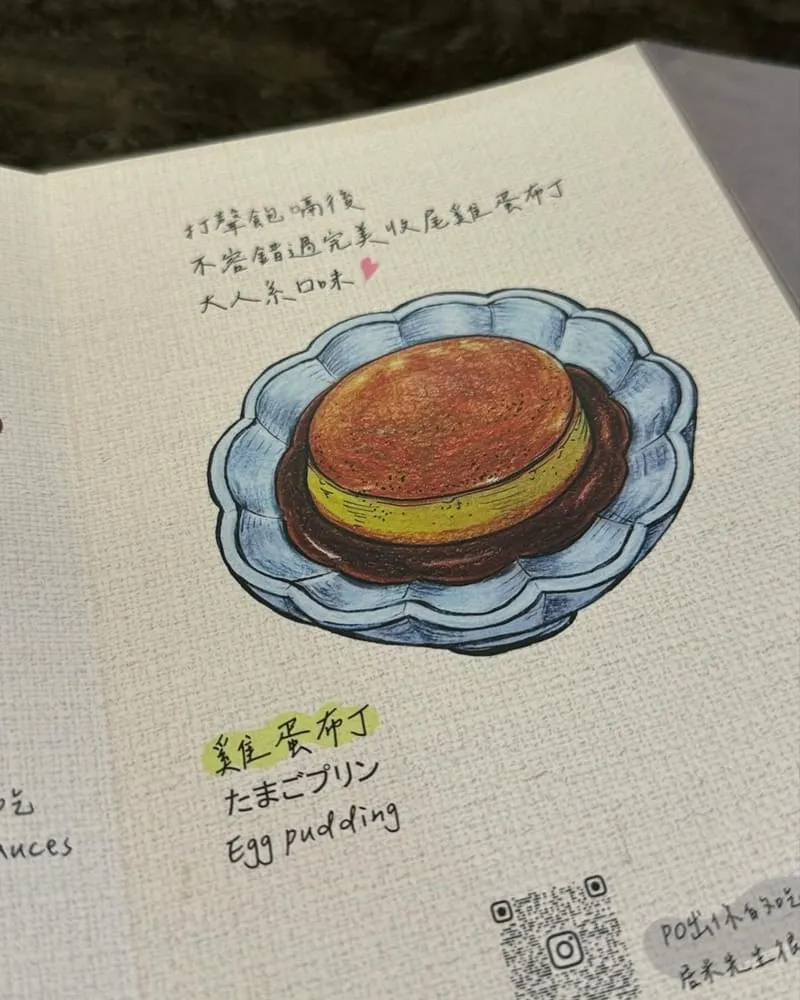 打聲飽嗝後
不容錯過完美收尾雞蛋布丁
大人系口味
雞蛋布丁
たまごプリン
Egg pudding
吃
auces
PO出你的吃
先生很